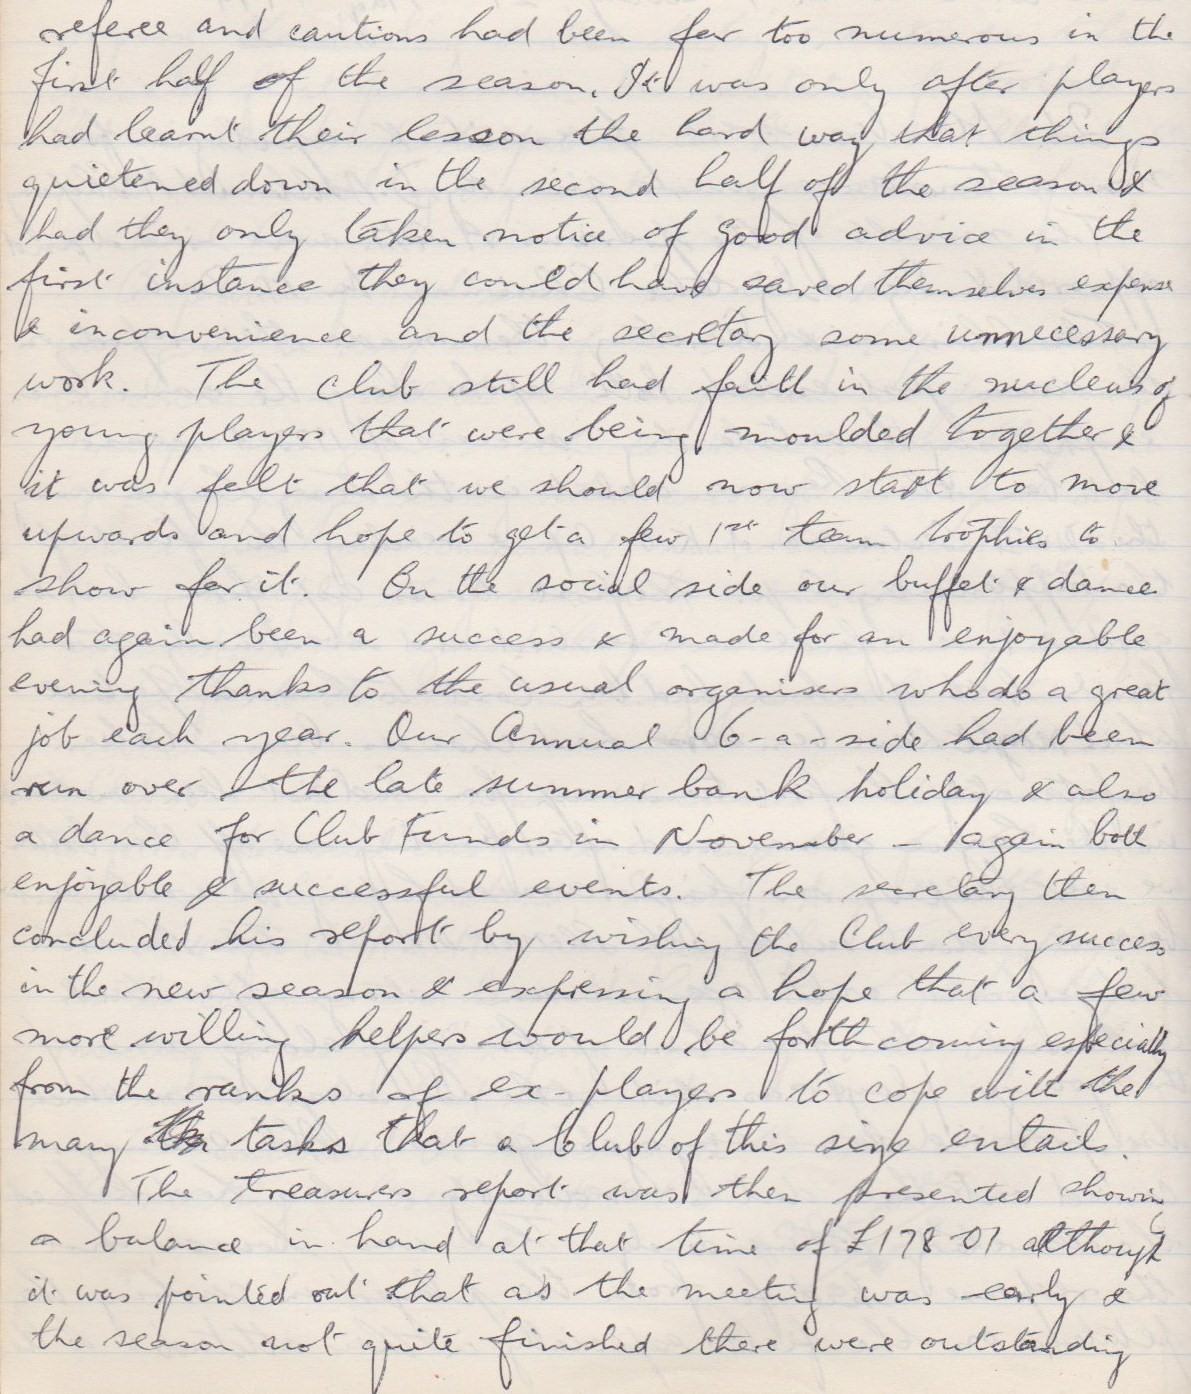 referee and cautions had been far too numerous in the
first half of the season. It was only after players
had learnt their lesson the hard way that things
quietened down in the second half of the season &
had they only taken notice of good advice in the
first instance they could have saved themselves expense
& inconvenience and the secretary some unnecessary
work. The Club still had faith in the nucleus of
young players that were being moulded together &
it was felt that we should now start to move
upwards and hope to get a few 1st team trophies to
show for it. On the social side our buffet & dance
had again been a success & made for an enjoyable
evening thanks to the usual organisers who do a great
job each year. Our Annual 6-a-side had been
run over the late summer bank holiday & also
a dance for Club Funds in November - again both
enjoyable & successful events. The secretary then
concluded his report by wishing the Club every success
in the new season & expressing a hope that a few
more willing helpers would be forthcoming especially
from the ranks of ex-players to cope with the
many tasks that a Club of this size entails.
The treasurers report was then presented showing
a balance in hand at that time of £178-01 although
it was pointed out that as the meeting was early &
the season not quite finished there were outstanding